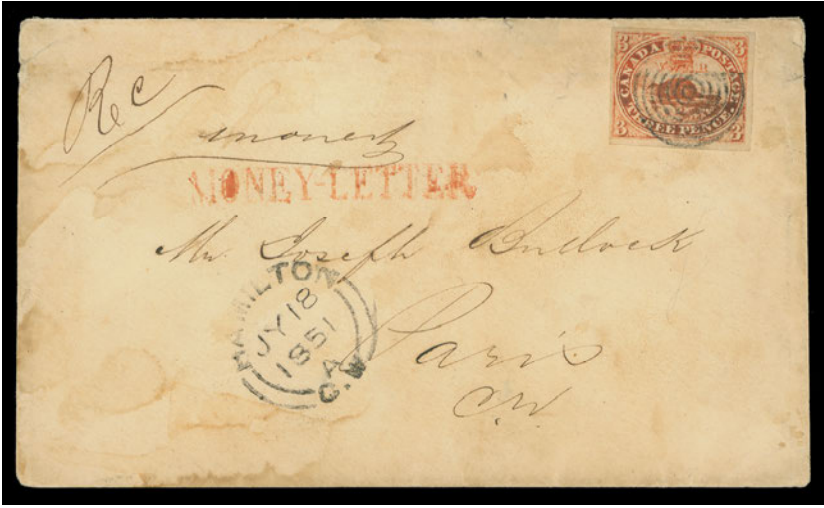 3 CANADA POSTAGE 3
3 THREE PENCE 3
Rec
money
MONEY-LETTER
Mr. Joseph Bullock
HAMILTON
JY 18
1851
A
C.W
Paris
CW